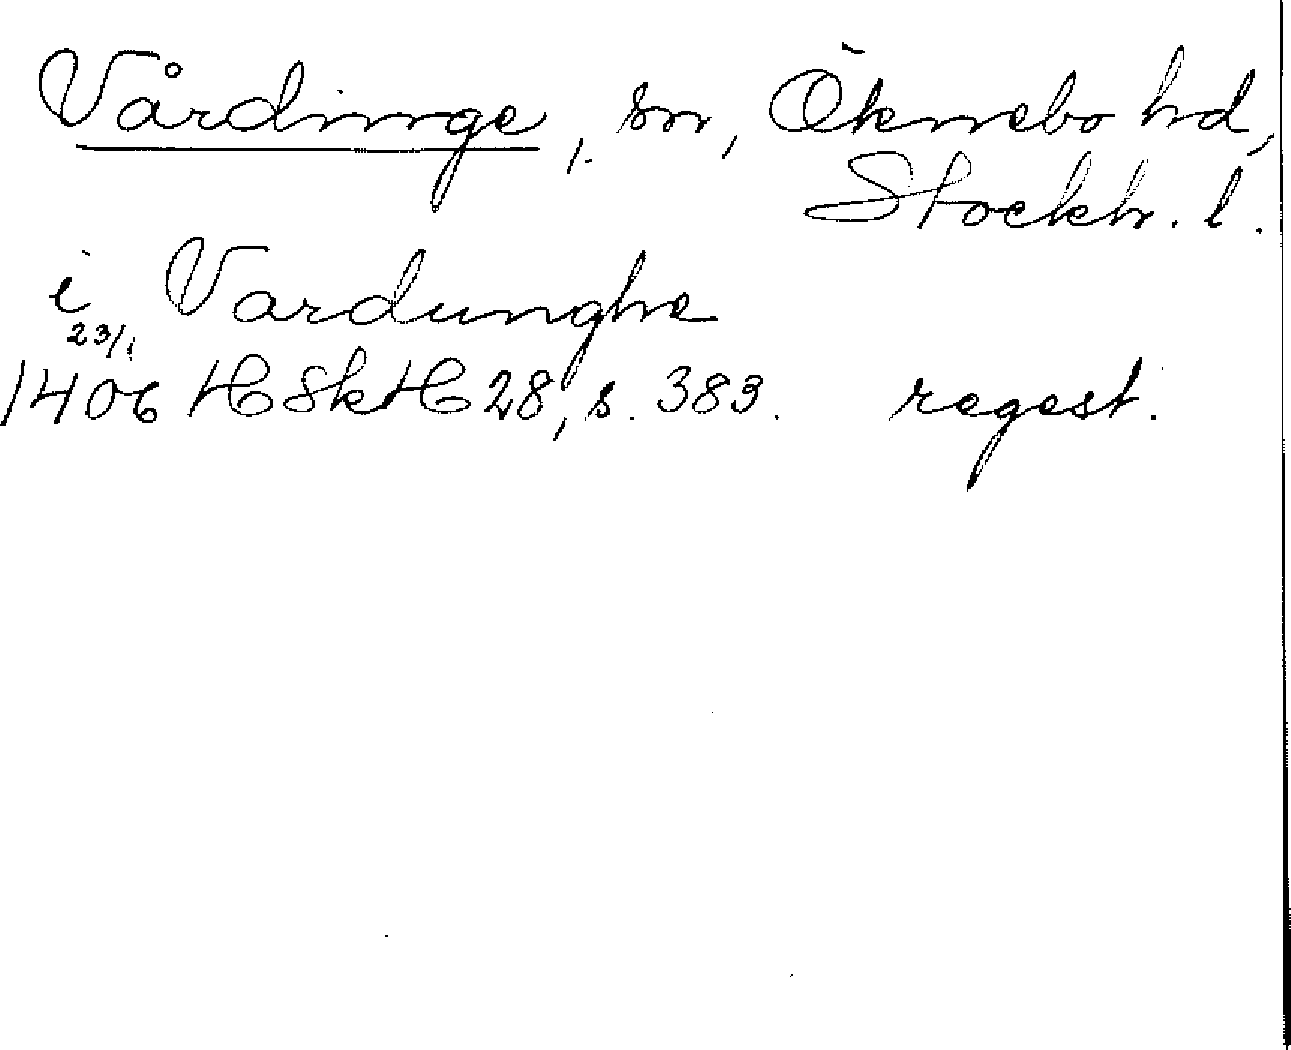 Vårdinge, sn, Öknebo hd,
Stockh. l.
i Vardunghe
23/1
1406 HSkH 28, s. 383. regest.